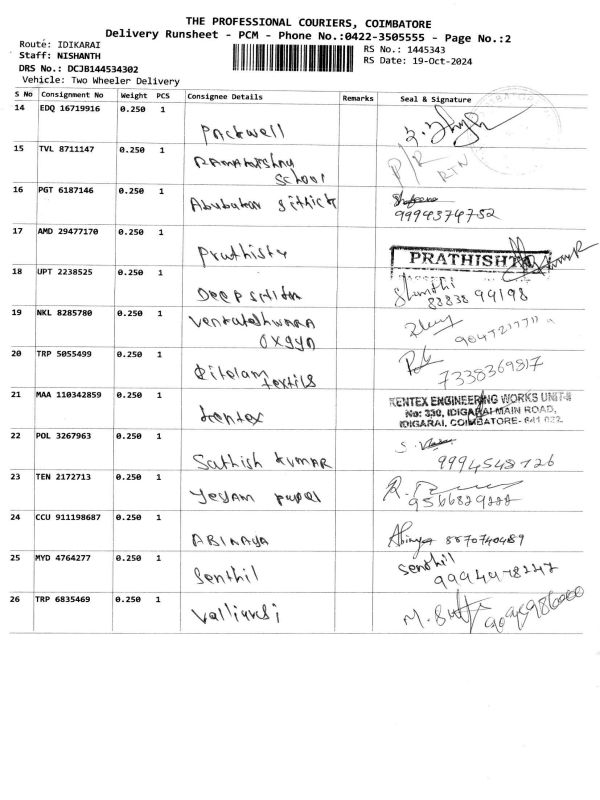 THE PROFESSIONAL COURIERS, COIMBATORE
Delivery Runsheet - PCM - Phone No.:0422-3505555 - Page No.:2
Route: IDIKARAI
RS No.: 1445343
Staff: NISHANTH
RS Date: 19-Oct-2024
DRS No.: DCJB144534302
Vehicle: Two Wheeler Delivery
S No Consignment No Weight PCS Consignee Details Remarks Seal & Signature
14 EDQ 16719916 0.250 1
Packwell
15 TVL 8711147 0.250 1
School
P/R RTN
16 PGT 6187146 0.250 1
Abubakar Sithick
9994374752
17 AMD 29477170 0.250 1
Prathisty
PRATHISHTA
18 UPT 2238525 0.250 1
Shanthi
83838 99198
19 NKL 8285780 0.250 1
Venkateshwara
Oxgyn
20 TRP 5055499 0.250 1
textils
7338369817
21 MAA 110342859 0.250 1
kentex
KENTEX ENGINEERING WORKS UNIT-II
No: 330, IDIGARAI MAIN ROAD,
IDIGARAI, COIMBATORE- 641 022.
22 POL 3267963 0.250 1
Sathish kumar
9994548726
23 TEN 2172713 0.250 1
Jeyam papel
9566829222
24 CCU 911198687 0.250 1
ABINAYA
Abinaya 8870740489
25 MYD 4764277 0.250 1
Senthil
Senthil
9994978247
26 TRP 6835469 0.250 1
Valliyarsi